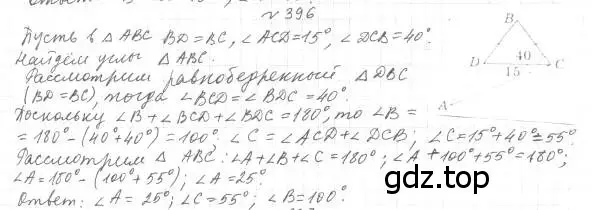 №396
Пусть в △ABC BD=BC, ∠ACD=15°, ∠DCB=40°.
Найдём углы △ABC.
Рассмотрим равнобедренный △DBC
(BD=BC), тогда ∠BCD=∠BDC=40°.
Поскольку ∠B+∠BCD+∠BDC=180°, то ∠B=
=180°-(40°+40°)=100°. ∠C=∠ACD+∠DCB; ∠C=15°+40°=55°
Рассмотрим △ABC: ∠A+∠B+∠C=180°; ∠A+100°+55°=180°;
∠A=180°-(100°+55°); ∠A=25°.
Ответ: ∠A=25°; ∠C=55°; ∠B=100°.
B
D
40
15
C
A
gdz.top